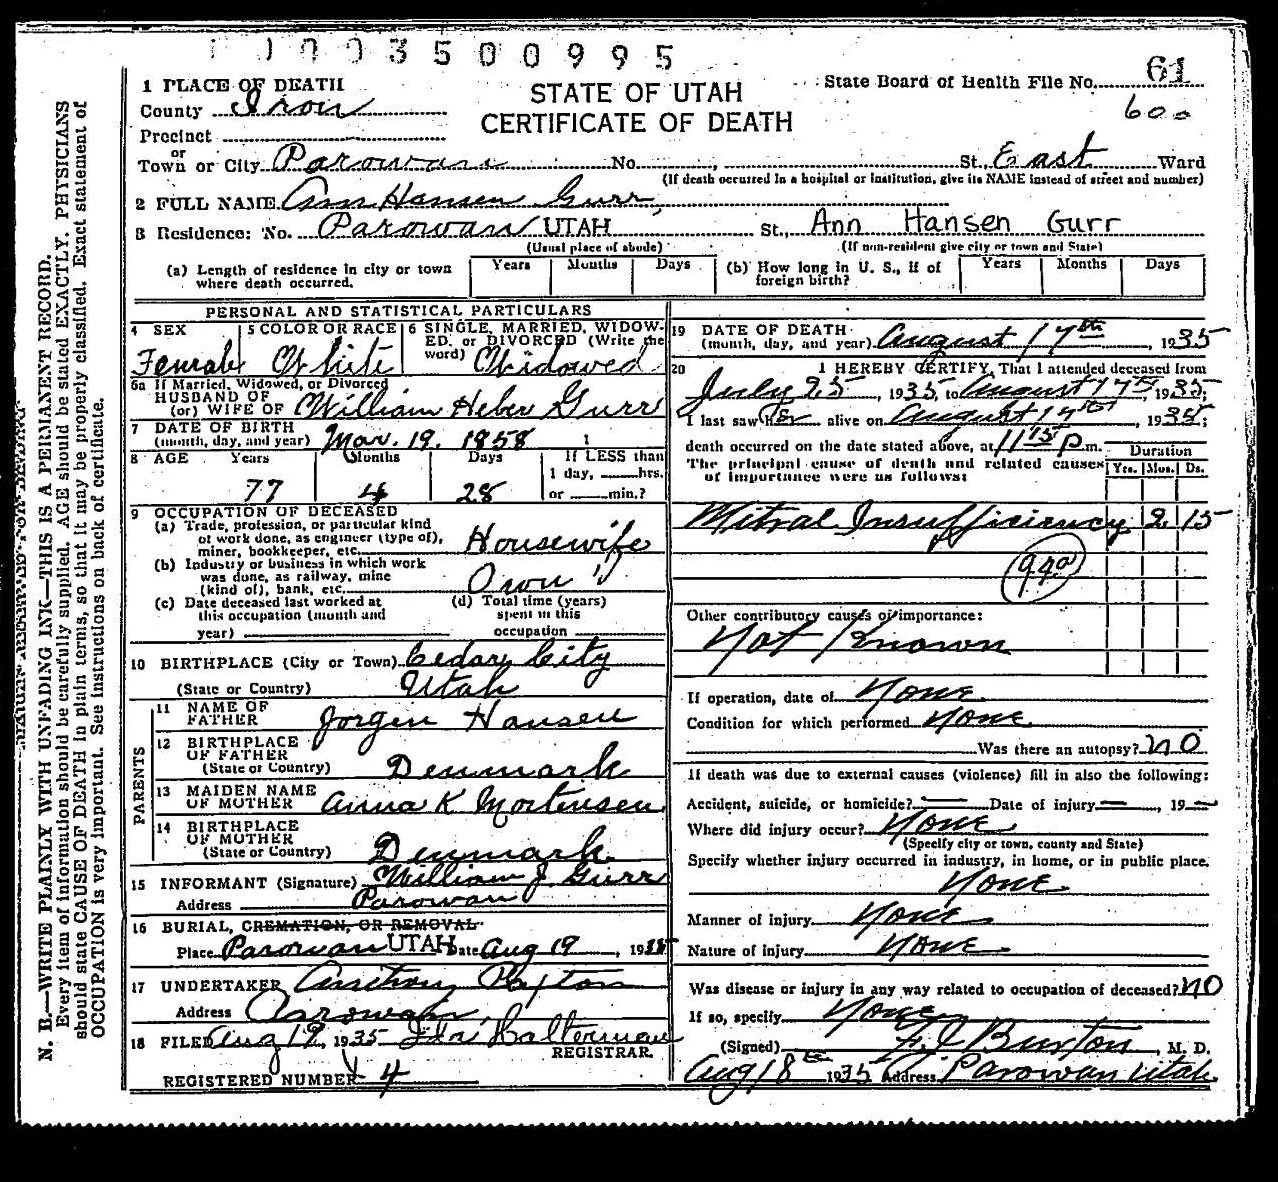 3500995
1 PLACE OF DEATH
STATE OF UTAH
CERTIFICATE OF DEATH
State Board of Health File No. 61
600
County Iron
Precinct
or
Town or City Parowan No. , St. East Ward
(If death occurred in a hospital or institution, give its NAME instead of street and number)
2 FULL NAME Ann Hansen Gurr,
3 Residence: No. Parowan UTAH St., Ann Hansen Gurr
(Usual place of abode) (If non-resident give city or town and State)
(a) Length of residence in city or town where death occurred. Years Months Days (b) How long in U. S., if of foreign birth? Years Months Days
PERSONAL AND STATISTICAL PARTICULARS
4 SEX Female
5 COLOR OR RACE White
6 SINGLE, MARRIED, WIDOWED, or DIVORCED (Write the word) Widowed
6a If Married, Widowed, or Divorced
HUSBAND OF
(or) WIFE OF William Heber Gurr
7 DATE OF BIRTH
(month, day, and year) Mar. 19. 1858
8 AGE Years Months Days If LESS than
1 day, hrs.
77 4 28 or min.?
9 OCCUPATION OF DECEASED
(a) Trade, profession, or particular kind
of work done, as engineer (type of),
miner, bookkeeper, etc. Housewife
(b) Industry or business in which work
was done, as railway, mine
(kind of), bank, etc. Own "
(c) Date deceased last worked at
this occupation (month and
year)
(d) Total time (years)
spent in this
occupation
10 BIRTHPLACE (City or Town) Cedar City
(State or Country) Utah
PARENTS
11 NAME OF
FATHER Jorgen Hansen
12 BIRTHPLACE
OF FATHER
(State or Country) Denmark
13 MAIDEN NAME
OF MOTHER Anna K Mortensen
14 BIRTHPLACE
OF MOTHER
(State or Country) Denmark
15 INFORMANT (Signature) William J. Gurr
Address Parowan
16 BURIAL, CREMATION, OR REMOVAL
Place Parowan UTAH Date Aug 19, 1935
17 UNDERTAKER Paxton
Address Parowan,
18 FILED Aug 19, 1935 Halterman
REGISTRAR.
REGISTERED NUMBER 4
19 DATE OF DEATH
(month, day, and year) August 17th, 1935
20 I HEREBY CERTIFY, That I attended deceased from
July 25, 1935, to August 17th, 1935;
I last saw her alive on August 17th, 1935;
death occurred on the date stated above, at 11 15 P m.
The principal cause of death and related causes
of importance were as follows:
Duration
Yrs. Mos. Ds.
Mitral Insufficiency 2 15
94a
Other contributory causes of importance:
Not Known
If operation, date of None
Condition for which performed None
Was there an autopsy? no
If death was due to external causes (violence) fill in also the following:
Accident, suicide, or homicide? Date of injury , 19
Where did injury occur? None
(Specify city or town, county and State)
Specify whether injury occurred in industry, in home, or in public place.
None
Manner of injury None
Nature of injury None
Was disease or injury in any way related to occupation of deceased? no
If so, specify None
(Signed) Burton, M. D.
Aug 18th 1935 Address Parowan Utah
N. B.—WRITE PLAINLY WITH UNFADING INK—THIS IS A PERMANENT RECORD.
Every item of information should be carefully supplied. AGE should be stated EXACTLY. PHYSICIANS
should state CAUSE OF DEATH in plain terms, so that it may be properly classified. Exact statement of
OCCUPATION is very important. See instructions on back of certificate.